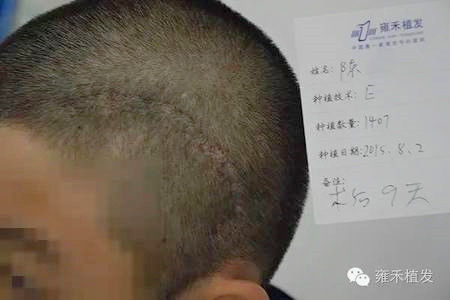 雍禾植发
姓名: 陈
种植技术: E
种植数量: 1407
种植日期: 2015.8.2
备注:
术后9天
雍禾植发